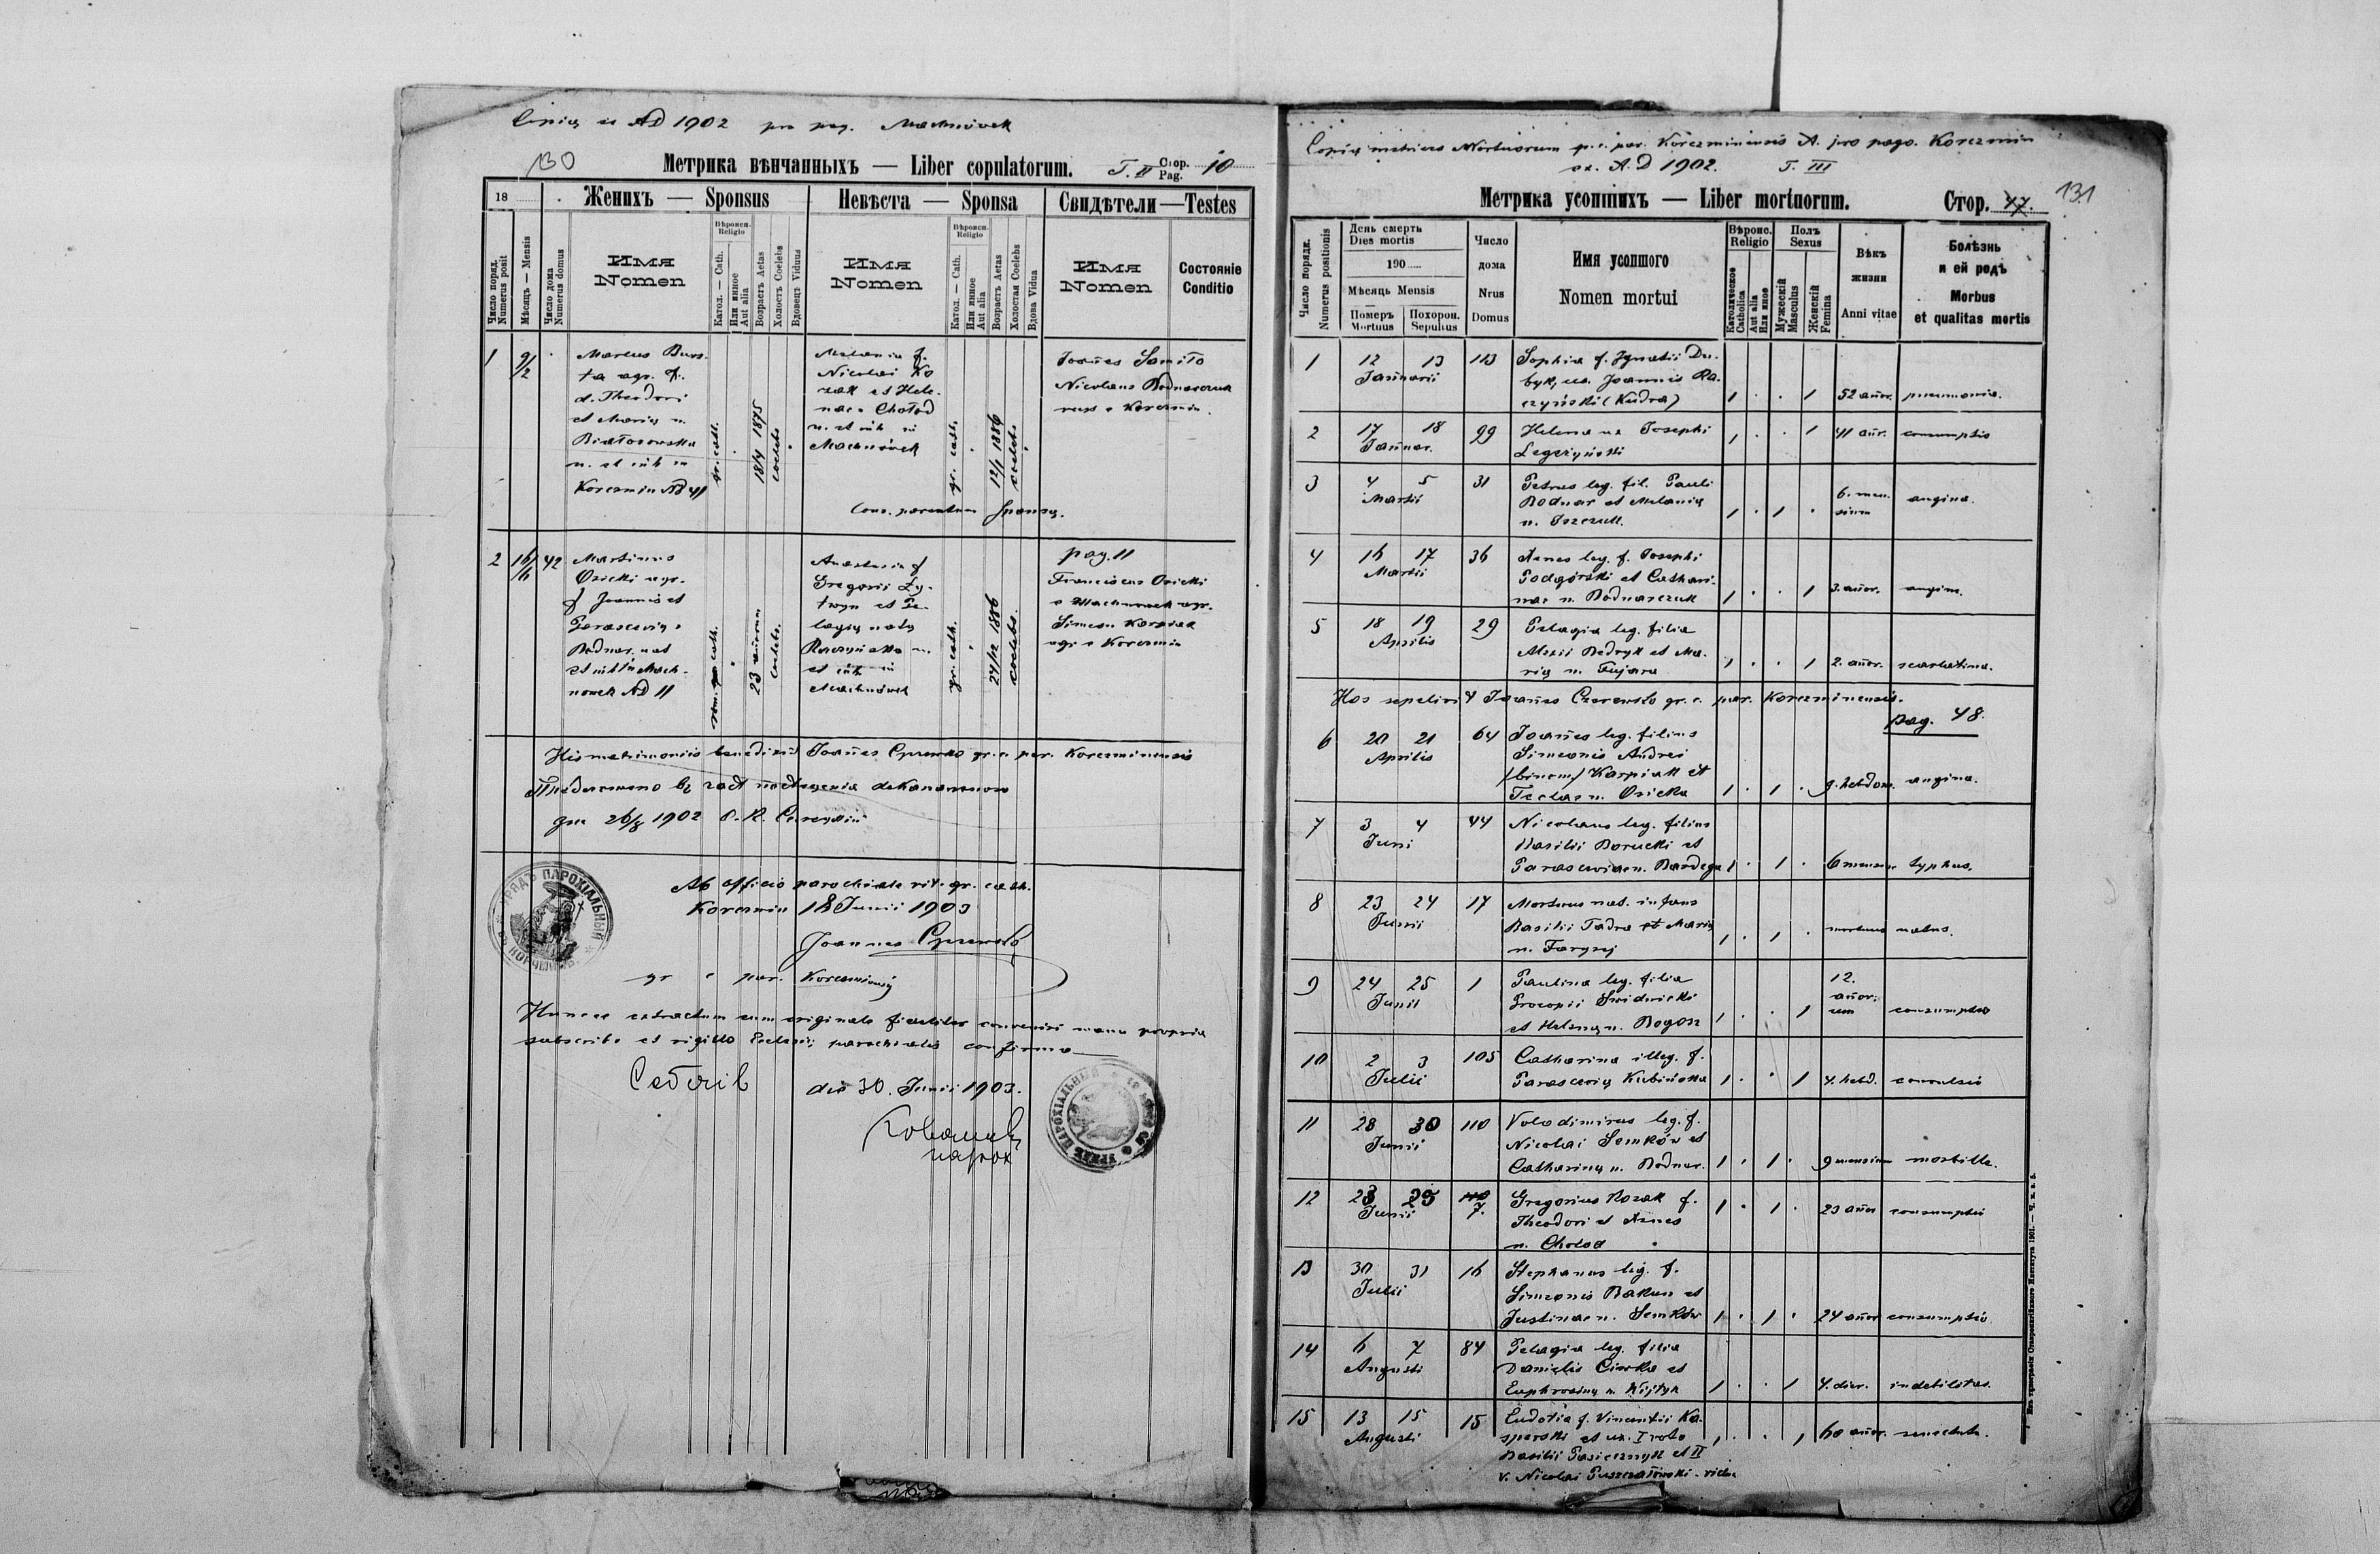 Copia ex AD 1902 pro pag. Machnówek
130
Метрика вѣнчанныхъ — Liber copulatorum.
T. II Стор. Pag. 10
18
Женихъ — Sponsus
Невѣста — Sponsa
Свидѣтели — Testes
Число поряд. Numerus posit
Мѣсяцъ — Mensis
Число дома Numerus domus
Имя Nomen
Вѣроисп. Religio
Катол. — Cath.
Или инное Aut alia
Возрастъ Aetas
Холостъ Coelebs
Вдовецъ Viduus
Имя Nomen
Вѣроисп. Religio
Катол. — Cath.
Или инное Aut alia
Возрастъ Aetas
Холостая Coelebs
Вдова Vidua
Имя Nomen
Состояніе Conditio
1 9/2
Marcus Burs-
ta agr. f.
d. Theodori
et Mariae n.
Białosowska
n. et inh in
Korczmin ND 41
gr. cath.
18/4 1875
coelebs
Melania f.
Nicolai Ko
zak et Hele-
nae n. Chołod
n. et inh in
Machnówek
gr. cath.
coelebs
Joañes
Nicolaus
Cons. parentum sponsae.
2 16/6 42
Martinus
Osicki agr.
f Joannis et
Parascevia n
Bodnar. nat
et inh in Mach-
nowek ND 11
23 añorum
coelebs.
Anastasia f
Gregorii Ly-
twyn et Pe-
lagiae natae
n.
et inh in
Machnówek
gr. cath.
24/12 1886
coelebs.
pag. 11
Franciscus Osicki
e Machnowek agr.
Simeon Karpiak
agr e Korczmin
His matrimoniis benedixit Joañes Czerewko gr. c. par. Korczminensis
дня 26/8 1902
Ab officio parochiale rit. gr. cath.
Korczmin 18 Junii 1903
Joannes Czerewko
gr c par. Korczminensis
Hunce extractum cum originale fideliter convenire manu propria
subscribo et sigillo Ecclesiae parochialis confirmo
die 30. Junii 1903.
парох
Copia metrices Mortuorum gr. c. par. Korczminensis A. pro pago. Korczmin
ex. A. D 1902. T. III
131
Метрика усопшихъ — Liber mortuorum.
Стор. 47.
Число порядк. Numerus positionis
День смерть Dies mortis
190
Мѣсяць Mensis
Померъ Mortuus
Похорон. Sepultus
Число дома Nrus Domus
Имя усопшого Nomen mortui
Вѣроис. Religio
Католическое Catholica
Aut alia Или иное
Полъ Sexus
Мужескій Masculus
Женскій Femina
Вѣкъ жизни Anni vitae
Болѣзнь и ей родъ Morbus et qualitas mortis
1 12 13 Januarii 113 Sophia f. Ignatii Du-
byk, ux. Joannis Ra-
czyński (Kudra) 1 . . 1 52 añor. pneumonia.
2 17 18 Januar. 99 Helena ux Josephi
1 . . 1 41 añr. consumptio
3 4 5 Martii 31 Petrus leg. fil. Pauli
Bodnar et Melaniae
1 . 1 . 6. men-
sium angina.
4 16 17 Martii 36 Agnes leg. f. Josephi
Podgórski et Cathari-
nae n. Bodnarczuk 1 . . 1 3. añor. angina.
5 18 19 Aprilis 29 Pelagia leg. filia
Alexii Bedryk et Ma-
riae n. Fujara 1 . . 1 2. añor. scarlatina.
Hos sepelivit Joañes Czerewko gr. c. par. Korczminensis.
pag. 48.
6 20 21 Aprilis 64 Joañes leg. filius
Simeonis Andrei
(binom) Karpiak et
Teclae n. Osicka 1 . 1 . 9. hebdom. angina.
7 3 4 Juni 44 Nicolaus leg. filius
Basilii Borucki et
Parasceviae n. Bardega 1 . 1 . 6 mensum typhus.
8 23 24 Junii 17 Mortuus nat. infans
Basilii Fadra et Mariae
1 . 1 . mortuus natus.
9 24 25 Junii 1 Paulina leg. filia
Procopii Swidnicki
et Helenae n. Bogosz 1 . . 1 12.
añor-
um consumptio
10 2 3 Julii 105 Catharina illeg. f.
Parasceviae Kubińska 1 . . 1 4. hebd. convulsio
11 28 30 Junii 110 Volodimirus leg. f.
Nicolai Semków et
Catharinae n. Bodnar. 1 . 1 . 9 mensium morbilli.
12 23 25 Junii 7. Gregorius Kozak f.
Theodori et Agnes
n. Cholod 1 . 1 . 23 añor consumptio
13 30 31 Julii 16 Stephanus leg. f.
Simeonis Bakun et
Justinae n. Semków 1 . 1 . 24 añor consumptio
14 6 7 Augusti 84 Pelagia leg. filia
Danielis Ciwka et
Euphrosinae n Wijtyk 1 . . 1 4. dier. indebilitas.
15 13 15 Augusti 15 Eudotia f. Vincentii Ka-
sperski et ux. I voto
Basilii Pasiecznyk et II
v. Nicolai 1 . . 1 60 añor. senectute.